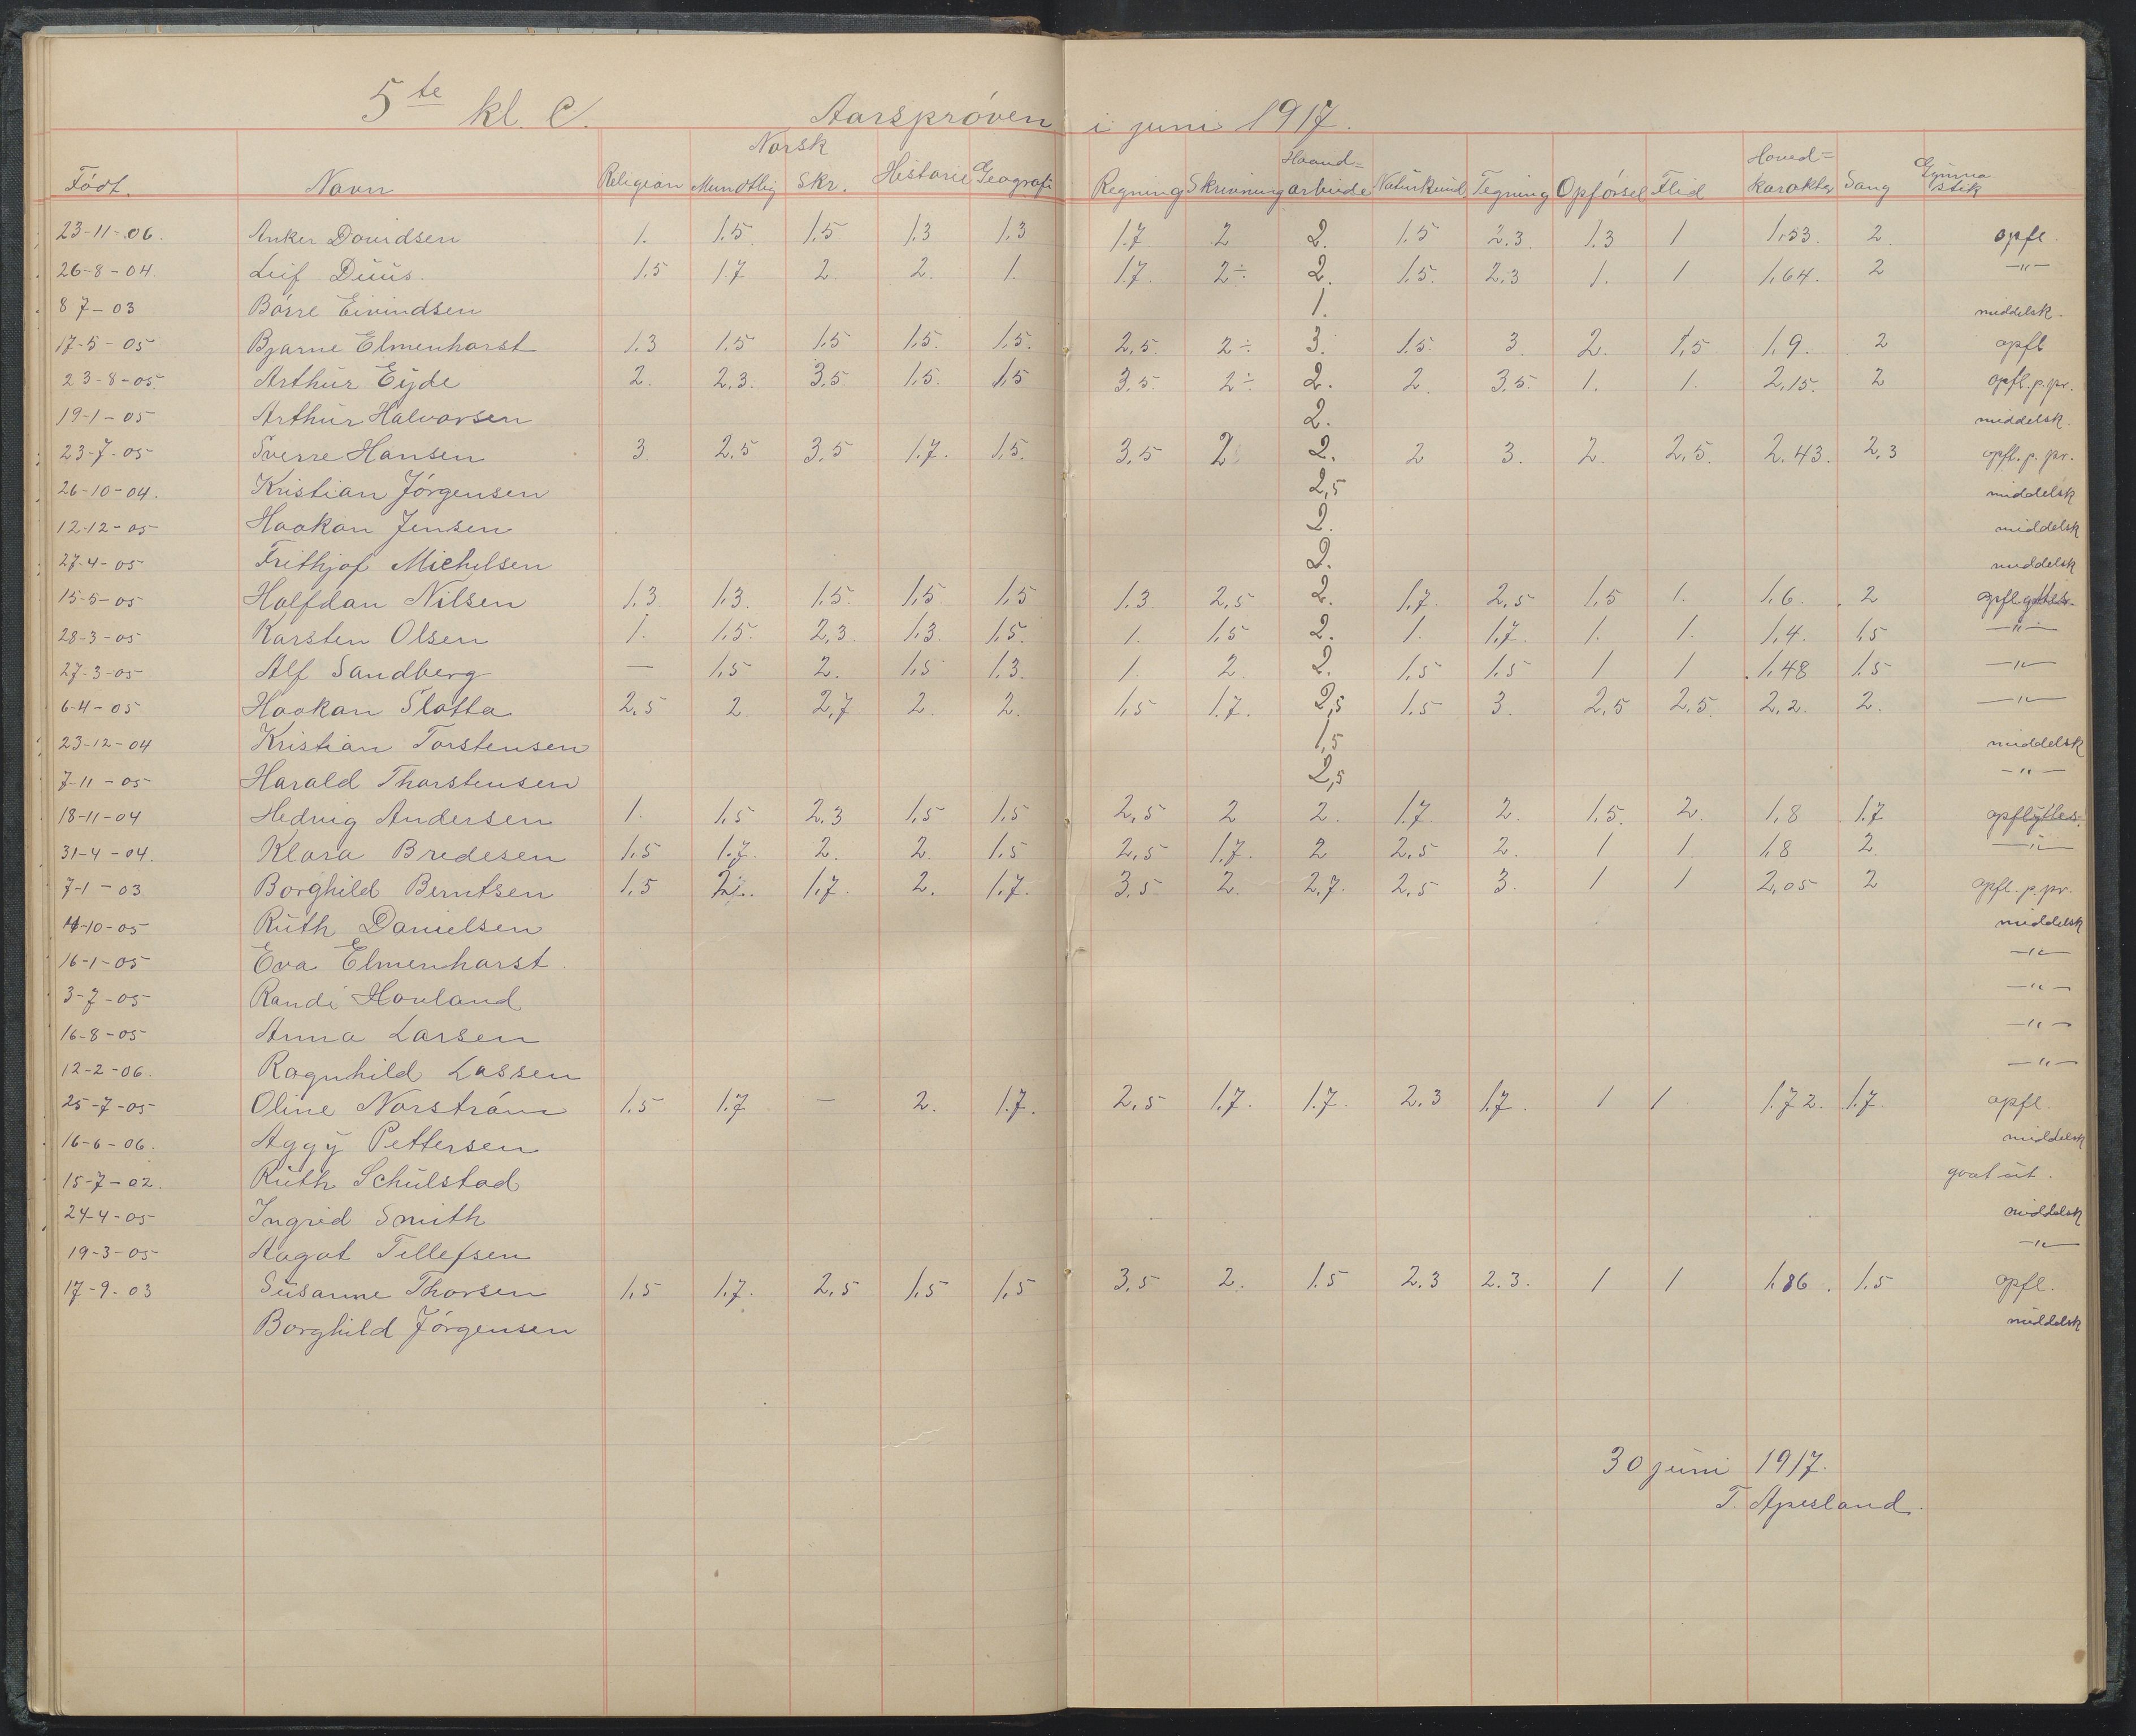 5te kl. C. Aarsprøven i juni 1917.
Norsk Haand= Hoved= Gymna
Født. Navn Religion Mundtlig Skr. Historie Geografi Regning Skrivning arbeide Naturkund. Tegning Opførsel Flid karakter Sang stik
23-11-06. Anker Davidsen 1. 1.5 1.5 1.3 1.3 1.7 2 2. 1.5 2.3 1.3 1 1,53. 2 opfl.
26-8-04. Leif Duus. 1.5 1.7 2. 2. 1. 1.7. 2÷ 2. 1.5. 2,3 1. 1 1,64. 2 -"-
8 7-03 Børre Eivindsen 1. middelsk.
17-5-05 Bjarne Elmenhorst 1.3 1.5 1.5 1.5. 1.5. 2,5. 2÷ 3. 1.5. 3. 2. 1,5 1,9. 2 opfl
23-8-05. Arthur Eyde 2. 2,3. 3,5. 1.5. 1,5 3,5. 2÷ 2. 2. 3,5. 1. 1. 2,15. 2 opfl. p. pr.
19-1-05 Arthur Halvorsen 2. middelsk.
23-7-05 Sverre Hansen 3. 2,5 3,5 1.7. 1.5. 3.5 2 2. 2 3. 2. 2,5. 2.43. 2,3 opfl. p. pr.
26-10-04. Kristian Jørgensen 2,5 middelsk
12-12-05 Haakon Jensen 2. middelsk
27-4-05 Frithjof Michelsen 2. middelsk
15-5-05 Halfdan Nilsen 1.3. 1.3. 1.5. 1,5 1,5 1.3. 2,5 2. 1.7. 2,5 1,5 1. 1,6. 2 opflyttes.
28-3-05 Karsten Olsen 1. 1.5. 2,3. 1.3. 1.5. 1. 1,5 2. 1. 1.7. 1. 1. 1,4. 1,5 -"-
27-3-05 Alf Sandberg — 1,5 2. 1,5 1,3. 1. 2. 2. 1,5 1,5 1 1 1,48 1.5 -"-
6-4-05 Haakon Slotta 2,5 2. 2,7 2. 2. 1,5 1.7. 2,5 1.5 3. 2,5 2,5. 2,2. 2. -"-
23-12-04 Kristian Torstensen 1,5 middelsk
7-11-05 Harald Thorstensen 2,5 -"-
18-11-04 Hedvig Andersen 1. 1,5 2.3 1,5 1,5 2,5 2 2. 1.7. 2. 1,5. 2. 1,8 1.7. opflyttes.
31-4-04. Klara Bredesen 1,5 1.7. 2. 2. 1.5 2,5 1.7. 2 2,5 2. 1 1. 1,8 2. -"-
7-1-03 Borghild Berntsen 1,5 2÷. 1.7. 2. 1.7. 3,5 2. 2,7. 2,5 3. 1 1 2,05 2 opfl. p. pr.
4-10-05 Ruth Danielsen middelsk
16-1-05 Eva Elmenhorst. -"-
3-7-05 Randi Hovland -"-
16-8-05 Anna Larsen -"-
12-2-06. Ragnhild Lassen -"-
25-7-05 Oline Norstrøm 1.5 1.7 — 2. 1.7. 2,5 1.7. 1.7. 2,3 1.7. 1 1 1.72. 1.7. opfl.
16-6-06. Aggy Pettersen middelsk
15-7-02. Ruth Schulstad gaat ut.
24-4-05 Ingrid Smith middelsk
19-3-05 Aagot Tellefsen -"-
17-9-03 Susanne Thorsen 1,5 1.7. 2,5 1,5 1,5 3,5 2. 1.5 2.3 2.3. 1 1 1.86. 1.5 opfl.
Borghild Jørgensen middelsk
30 juni 1917.
T. Apesland.